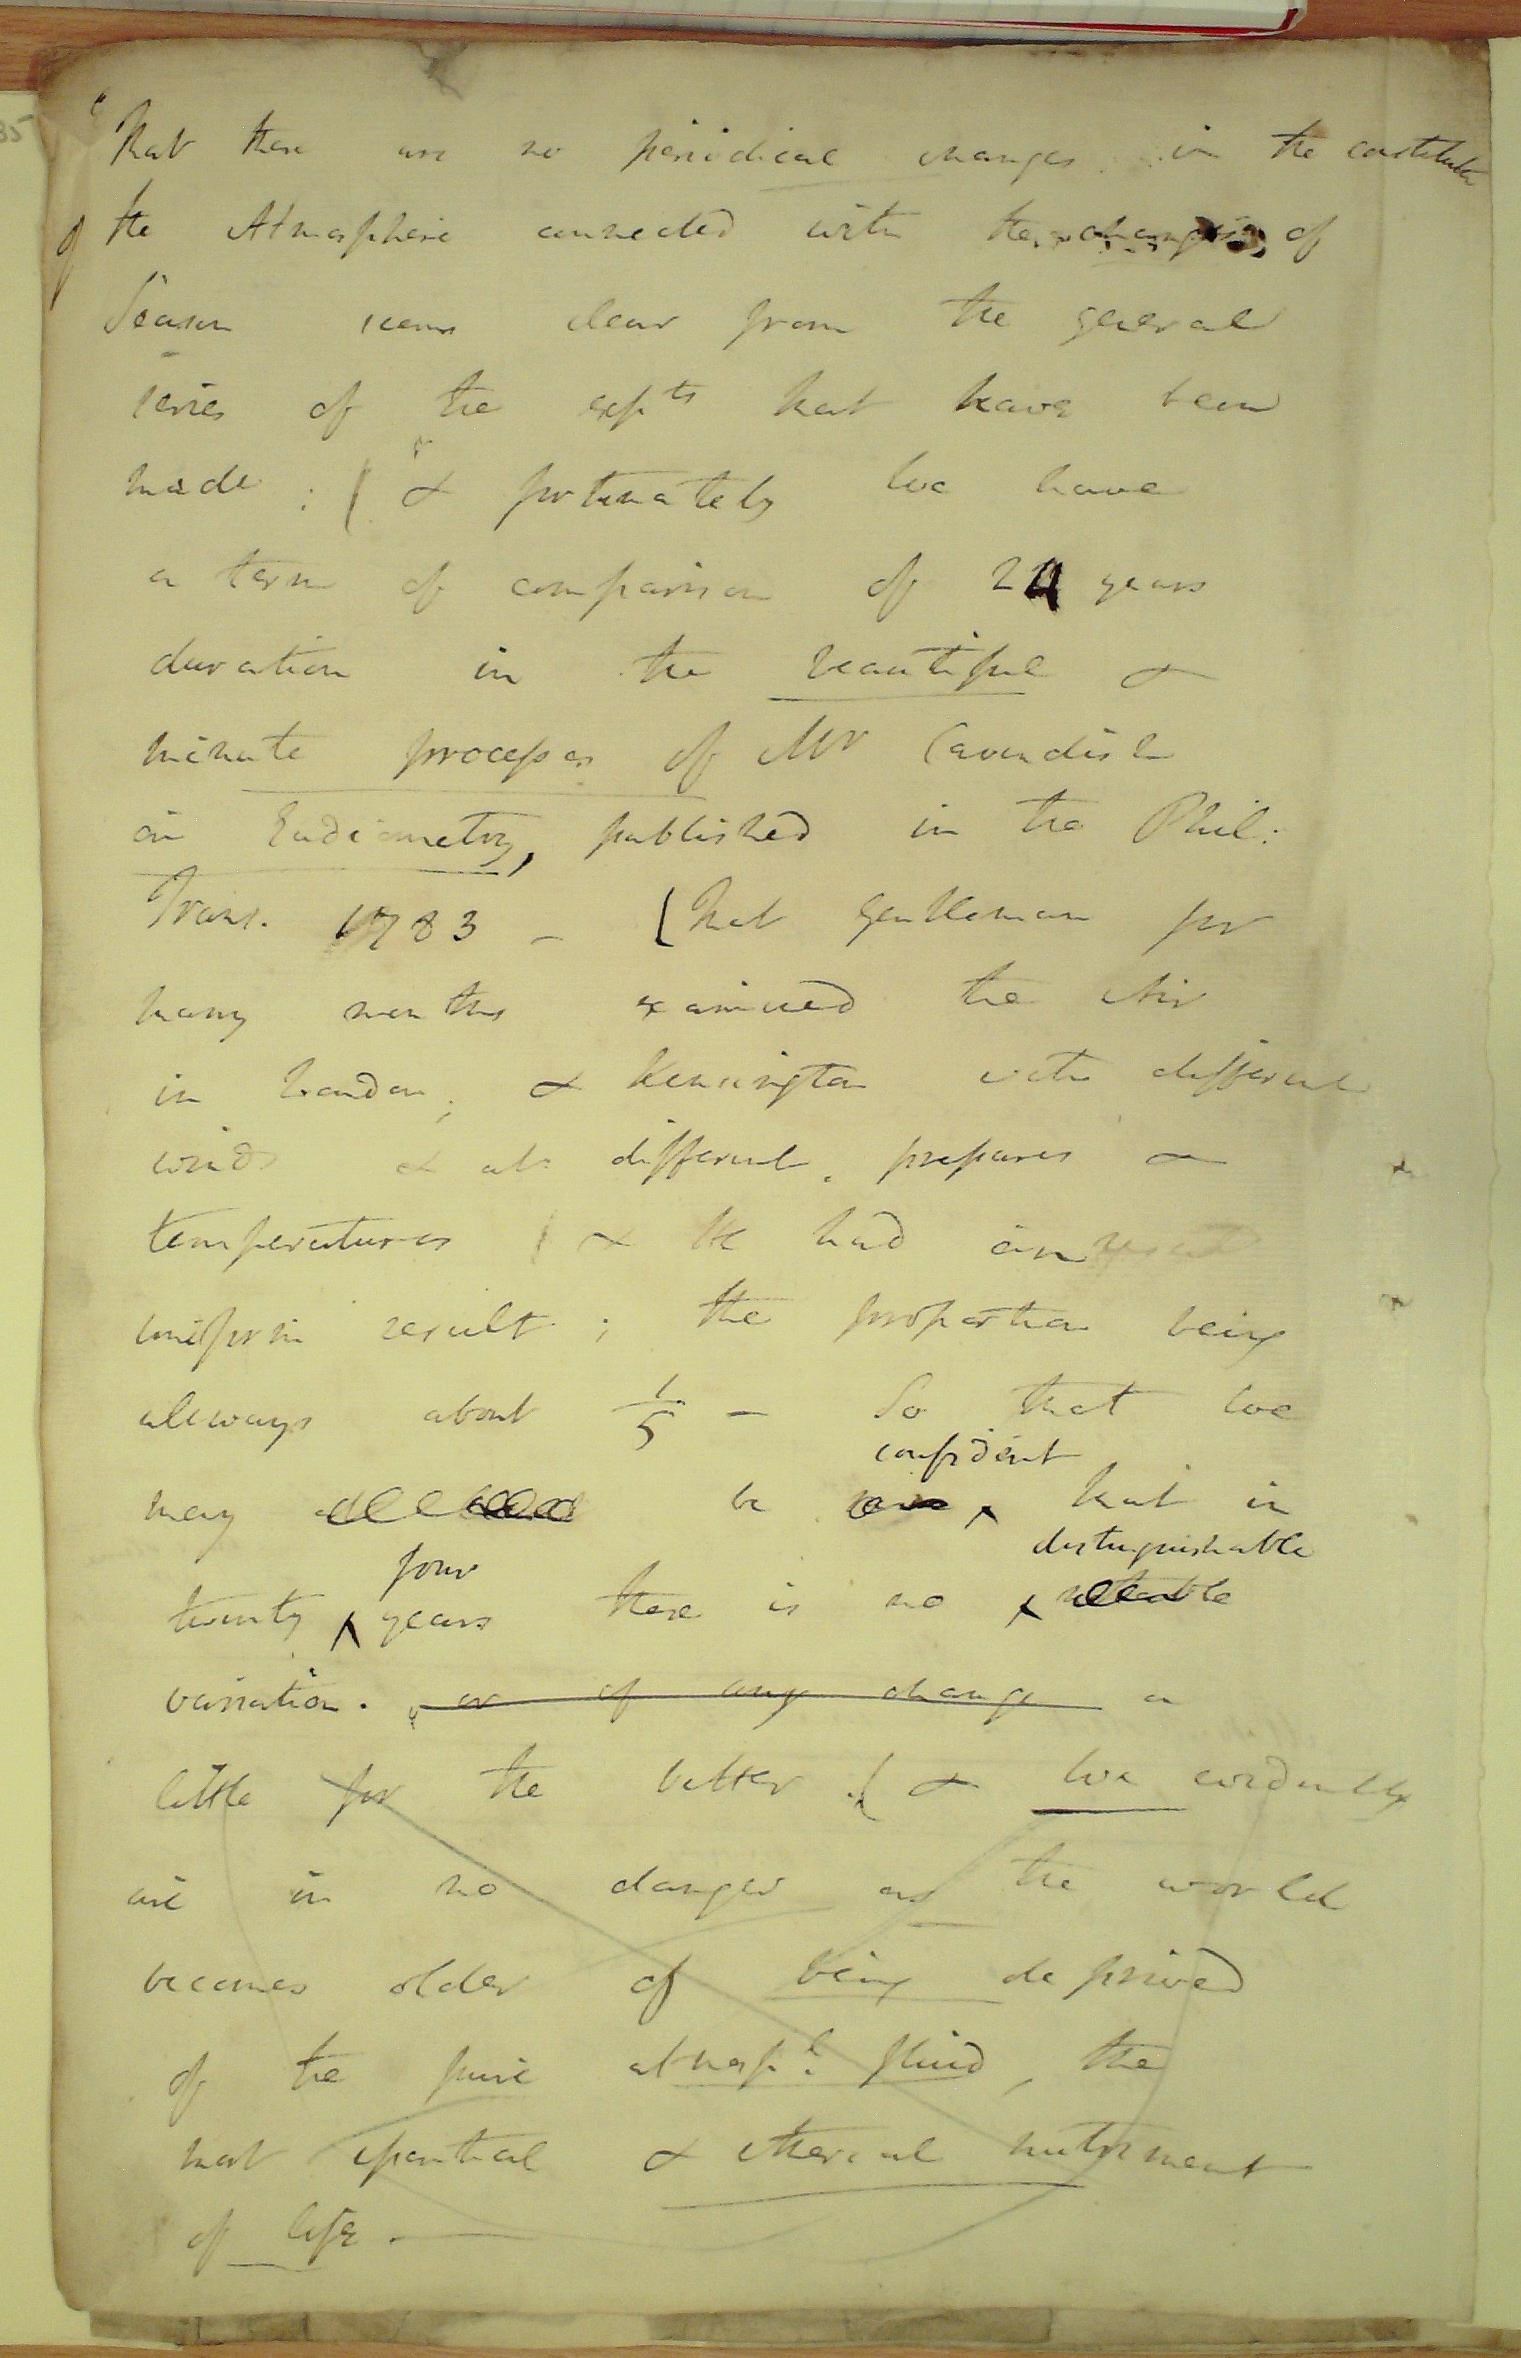 "That there are no periodical changes in the constitution
of the Atmosphere connected with the changes of
Season seems clear from the general
series of the exp.ts that have been
made; ( & fortunately we have
a term of comparison of 24 years
duration in the beautiful &
minute processes of Mr Cavendish
on Eudiometry, published in the Phil:
Trans. 1783 - (That gentleman for
many months examined the Air
in London, & Kensington with different
winds & at different pressures &
temperatures & He had an
uniform result; the proportion being
allways about 1/5 - So that we
confident
may be that in
distinguishable
four
twenty ^ years there is no ^ notable
variation. or of any change a
little for the better. ( & we evidently
are in no danger as the world
becomes older of being deprived
of the pure atmosp.l fluid, the
most essential & etherial nutriment
of life. -